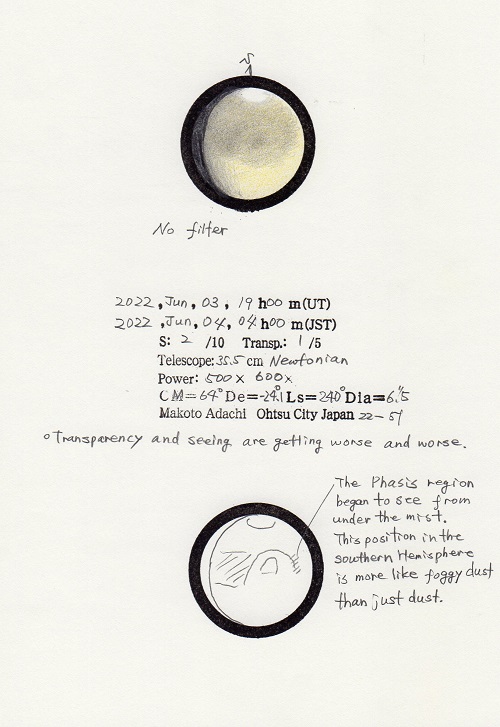 S
No filter
2022, Jun, 03, 19 h00 m(UT)
2022, Jun, 04, 04 h00 m(JST)
S: 2 /10 Transp.: 1 /5
Telescope: 35.5 cm Newtonian
Power: 500× 600×
CM=64° De=-24.1° Ls=240° Dia=6."5
Makoto Adachi Ohtsu City Japan 22-51
○Transparency and seeing are getting worse and worse.
The Phasis region
began to see from
under the mist.
This position in the
southern Hemisphere
is more like foggy dust
than just dust.